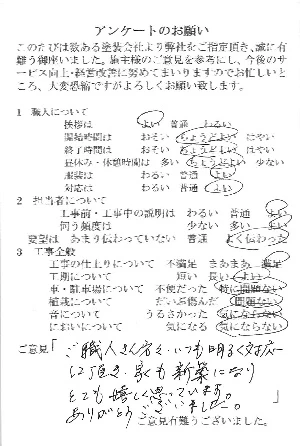 アンケートのお願い
このたびは数ある塗装会社より弊社をご指定頂き、誠に有
難う御座いました。施主様のご意見を参考にし、今後のサ
ービス向上・経営改善に努めてまいりますのでお忙しいと
ころ、大変恐縮ですがよろしくお願い致します。
1 職人について
挨拶は よい 普通 わるい
開始時間は おそい ちょうどよい はやい
終了時間は おそい ちょうどよい はやい
昼休み・休憩時間は 多い ちょうどよい 少ない
服装は わるい 普通 よい
対応は わるい 普通 よい
2 担当者について
工事前・工事中の説明は わるい 普通 よい
伺う頻度は 少ない 多い よい
要望は あまり伝わっていない 普通 よく伝わった
3 工事全般
工事の仕上りについて 不満足 まあまあ 満足
工期について 短い 長い よい
車・駐車場について 不便だった 特に問題ない
植栽について だいぶ傷んだ 問題ない
音について うるさかった 気にならない
においについて 気になる 気にならない
ご意見「ご職人さん方々いつも明るく対応
頂き、家も新築になり
とても嬉しく思っています。
ありがとうございました。」
ご意見有難うございました。